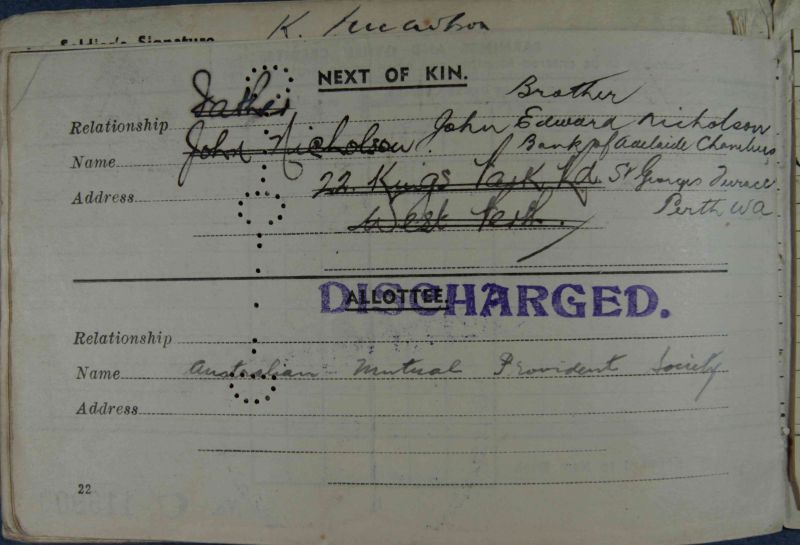 Soldier's Signature
NEXT OF KIN.
Brother
Relationship Father
Name John Nicholson John Edward Nicholson
Bank of Adelaide Chambers
Address 22. Kings Park Rd St Georges Terrace
West Perth. Perth WA
ALLOTTEE.
DISCHARGED.
Relationship
Name Australian Mutual Provident Society
Address
22